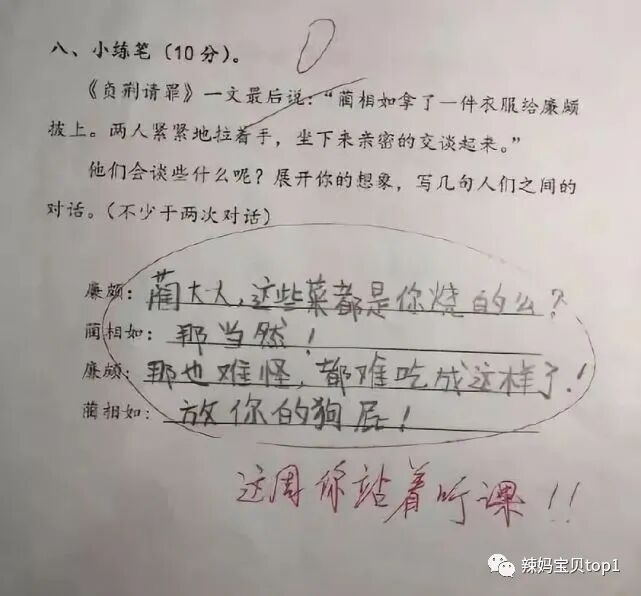 八、小练笔（10分）。
《负荆请罪》一文最后说：“蔺相如拿了一件衣服给廉颇
披上。两人紧紧地拉着手，坐下来亲密的交谈起来。”
他们会谈些什么呢？展开你的想象，写几句人们之间的
对话。（不少于两次对话）
廉颇：蔺大人，这些菜都是你烧的么？
蔺相如：那当然！
廉颇：那也难怪，都难吃成这样了！
蔺相如：放你的狗屁！
这周你站着听课！！
辣妈宝贝top1